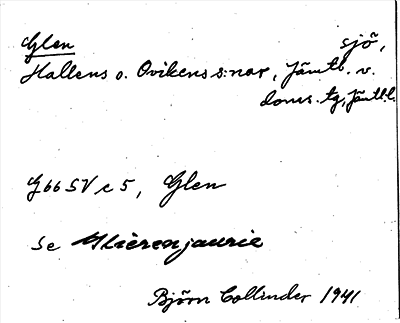 Glen sjö,
Hallens o. Ovikens s:nar, Jämtl. v.
doms. tg, Jämtl.l.
G66 SV c 5, Glen
Se Glierenjaurie
Björn Collinder 1941